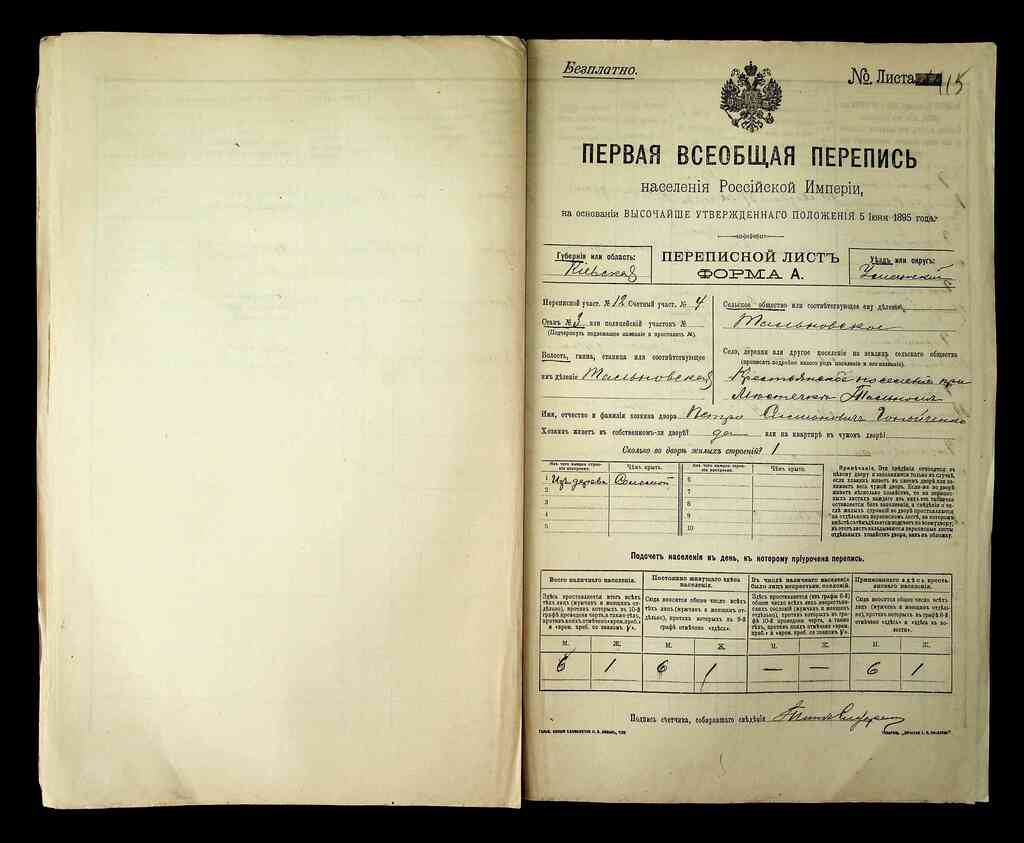 Безплатно.
№ Листа 115
ПЕРВАЯ ВСЕОБЩАЯ ПЕРЕПИСЬ
населенія Россійской Имперіи,
на основаніи ВЫСОЧАЙШЕ УТВЕРЖДЕННАГО ПОЛОЖЕНІЯ 5 Іюня 1895 года.
Губернія или область:
Кіевская
ПЕРЕПИСНОЙ ЛИСТЪ
ФОРМА А.
Уѣздъ или округъ:
Уманскій
Переписной участ. № 12 Счетный участ. № 4
Станъ № 3 или полицейскій участокъ №
(Подчеркнуть подлежащее названіе и проставить №).
Волость, гмина, станица или соотвѣтствующее
имъ дѣленіе Тальновская
Сельское общество или соотвѣтствующее ему дѣленіе
Тальновское
Село, деревня или другое поселеніе на земляхъ сельскаго общества
(прописать подробно какого рода поселеніе и его названіе).
Крестьянское поселеніе при
Мѣстечкѣ Тальномъ
Имя, отчество и фамилія хозяина двора Петро
Хозяинъ живетъ въ собственномъ-ли дворѣ? да или на квартирѣ въ чужомъ дворѣ?
Сколько во дворѣ жилыхъ строеній? 1
Изъ чего жилыя строенія построены. Чѣмъ крыты. Изъ чего жилыя строенія построены. Чѣмъ крыты.
1 Изъ дерева Соломой 6
2 7
3 8
4 9
5 10
Примѣчаніе. Эти свѣдѣнія относятся къ
цѣлому двору и заполняются только въ случаѣ,
если хозяинъ живетъ въ своемъ дворѣ или за-
нимаетъ весь чужой дворъ. Если-же во дворѣ
живетъ нѣсколько хозяйствъ, то на перепис-
ныхъ листахъ каждаго изъ нихъ эта табличка
оставляется безъ заполненія, а свѣдѣнія о чи-
слѣ жилыхъ строеній во дворѣ проставляются
Подсчетъ населенія въ день, къ которому пріурочена перепись.
Всего наличнаго населенія. Постоянно живущаго здѣсь населенія. Въ числѣ наличнаго населенія было лицъ некрестьян. сословій. Приписаннаго здѣсь крестьянскаго населенія.
Здѣсь проставляется итогъ всѣхъ
тѣхъ лицъ (мужчинъ и женщинъ от-
дѣльно), противъ которыхъ въ 10-й
графѣ проведена черта, а также тѣхъ,
противъ коихъ отмѣчено «врем. преб.»
и «врем. преб. со знакомъ V».
Сюда вносится общее число всѣхъ
тѣхъ лицъ (мужчинъ и женщинъ от-
дѣльно), противъ которыхъ въ 9-й
графѣ отмѣчено «здѣсь».
Здѣсь проставляется (изъ графы 6-й)
общее число всѣхъ лицъ некрестьян-
скихъ сословій (мужчинъ и женщинъ
отдѣльно), противъ которыхъ въ графѣ
10-й проведена черта, а также отмѣчено «врем.
преб.» и «врем. преб. со знакомъ V».
Сюда вносится общее число всѣхъ
лицъ (мужчинъ и женщинъ отдѣль-
но), противъ которыхъ въ графѣ 8-й
отмѣчено «здѣсь» и «здѣсь въ во-
лости».
М. Ж. М. Ж. М. Ж. М. Ж.
6 1 6 1 — — 6 1
Подпись счетчика, собиравшаго свѣдѣнія